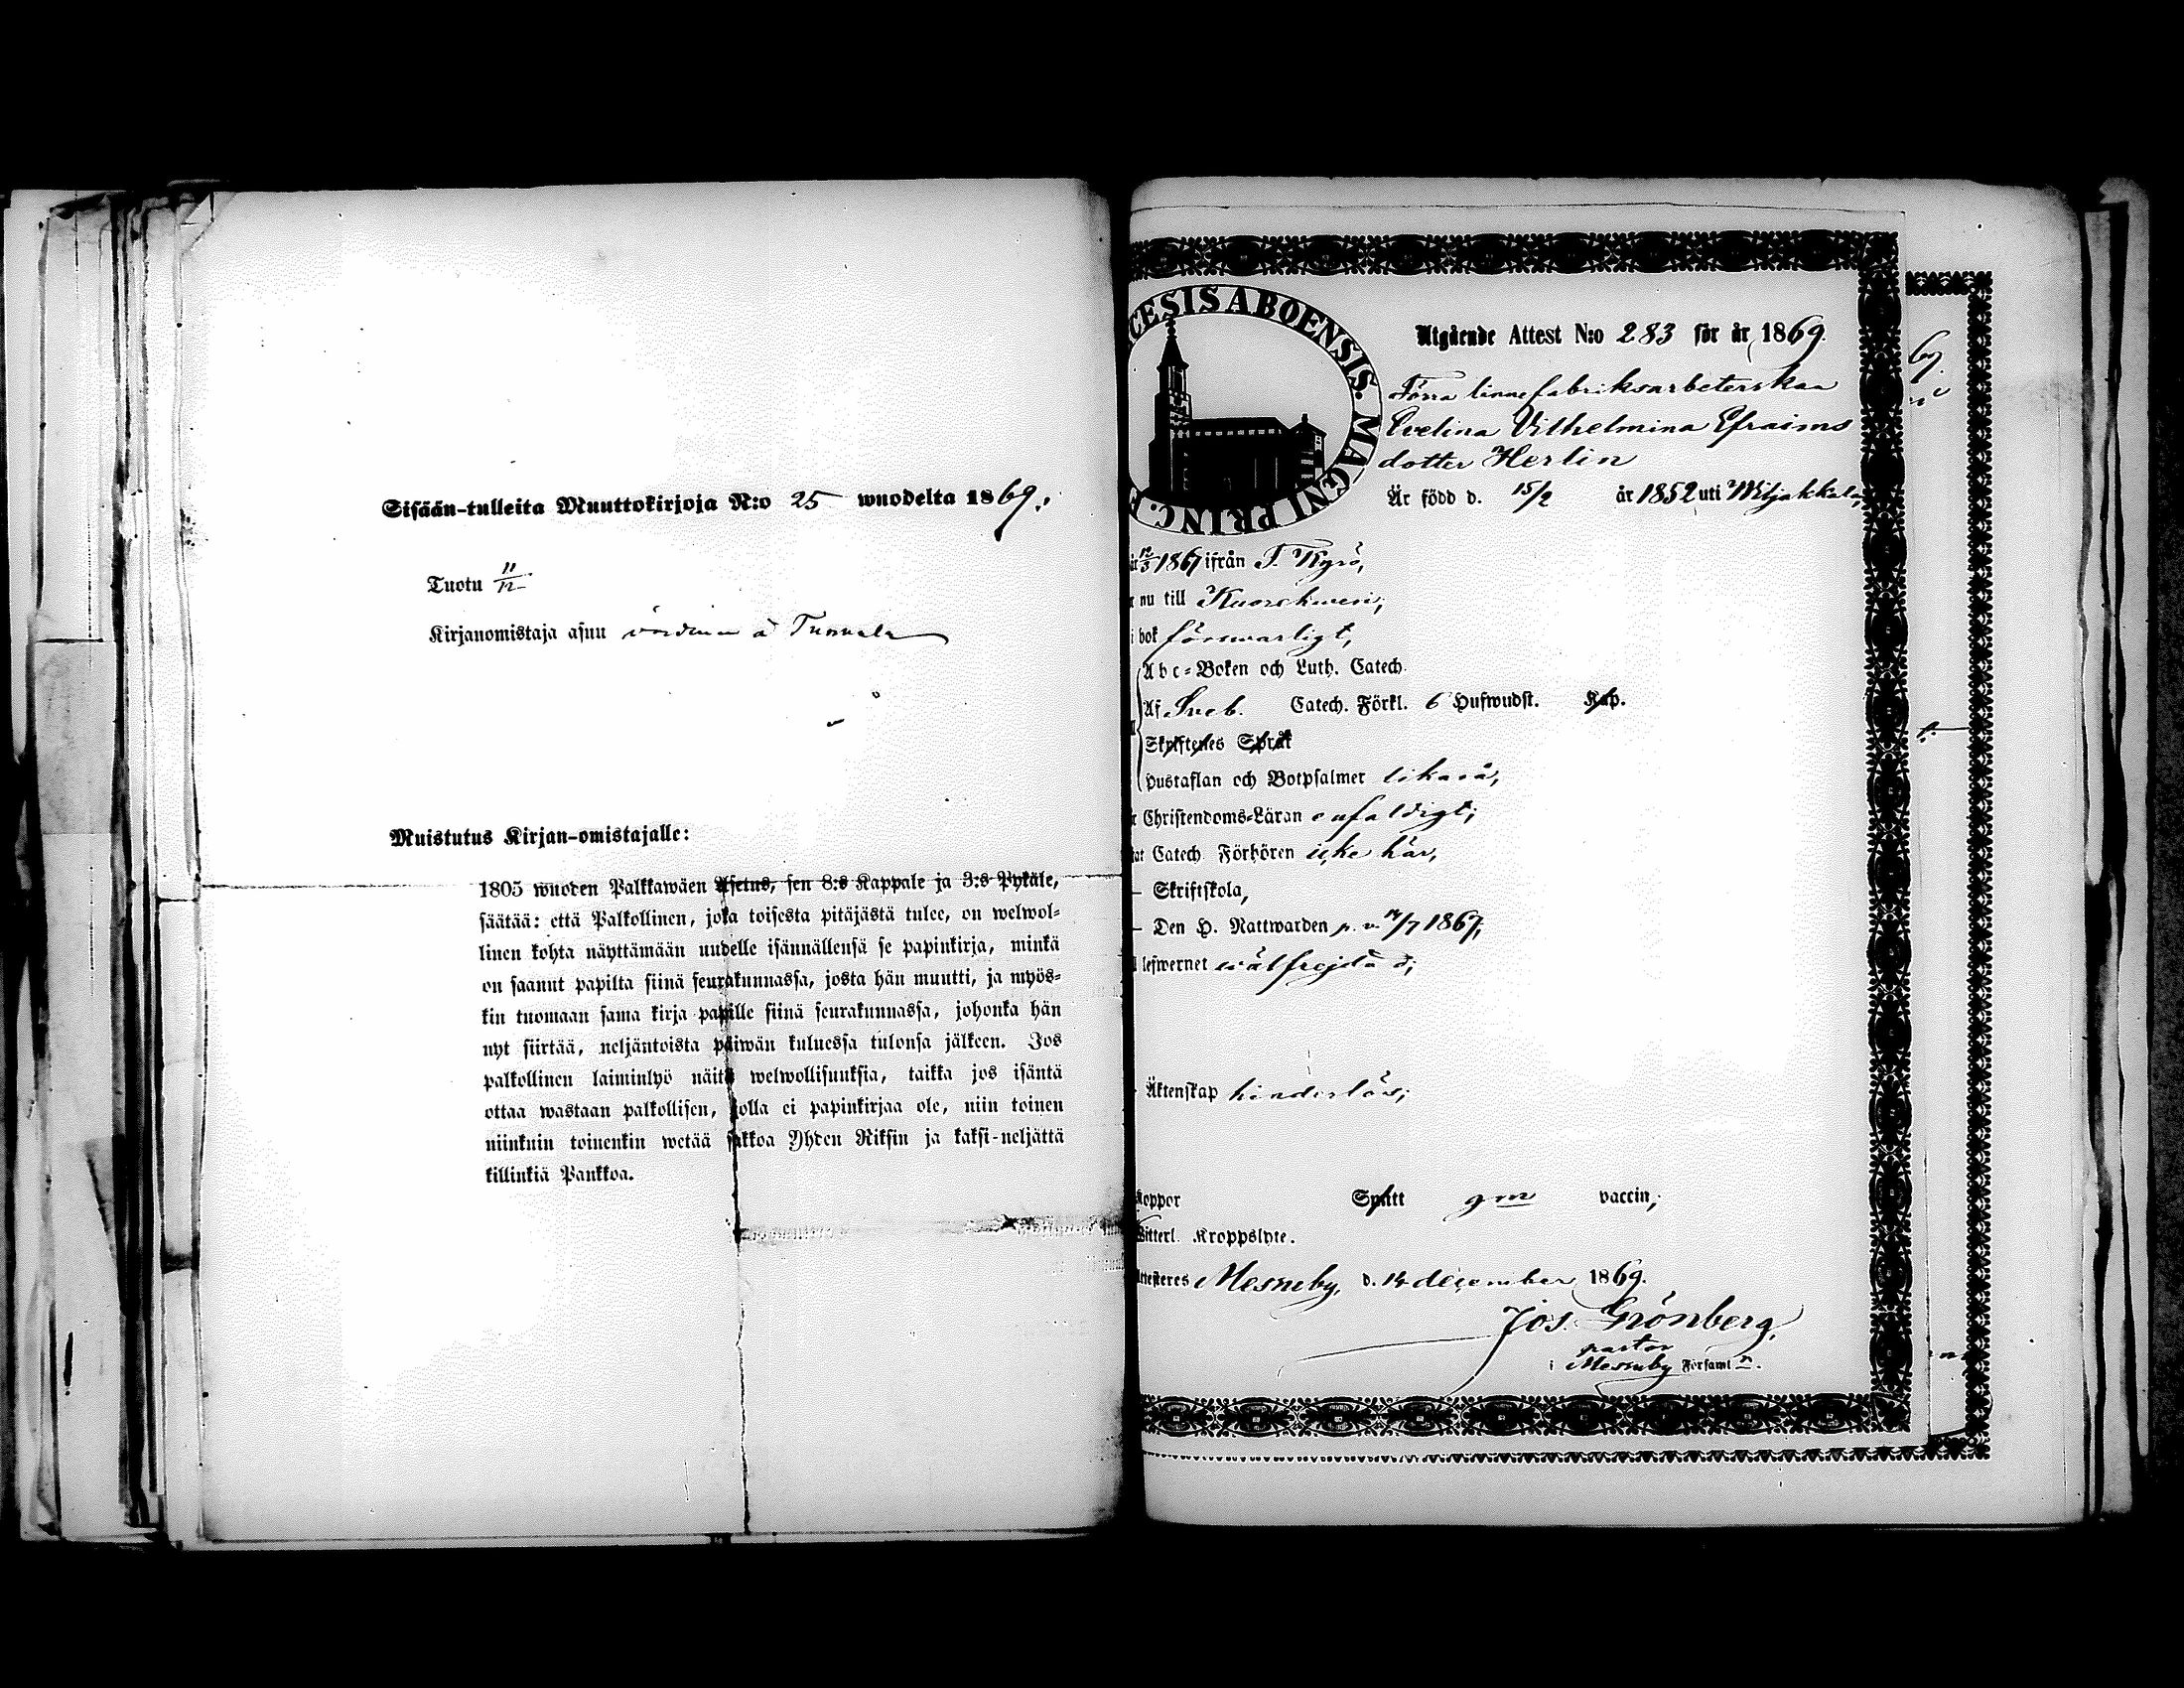 Sisään-tulleita Muuttokirjoja N:o 25 wuodelta 1869.
Tuotu 11/12
Kirjanomistaja asuu
Muistutus Kirjan-omistajalle:
1805 wuoden Palkkawäen Asetus, sen 8:s Kappale ja 3:s Pykäle,
säätää: että Palkollinen, joka toisesta pitäjästä tulee, on welwol-
linen kohta näyttämään uudelle isännällensä se papinkirja, minkä
on saanut papilta siinä seurakunnassa, josta hän muutti, ja myös-
kin tuomaan sama kirja papille siinä seurakunnassa, johonka hän
nyt siirtää, neljäntoista päiwän kuluessa tulonsa jälkeen. Jos
palkollinen laiminlyö näitä welwollisuuksia, taikka jos isäntä
ottaa wastaan palkollisen, jolla ei papinkirjaa ole, niin toinen
niinkuin toinenkin wetää sakkoa Yhden Riksin ja kaksi-neljättä
killinkiä Pankkoa.
CESIS ABOENSIS. MAGNI PRINC. F
Utgående Attest N:o 283 för år 1869.
Förra linnefabriksarbeterskan
Evelina Vilhelmina Efraims
dotter Herlin
Är född d. 15/2 år 1852 uti Wiljakkala,
1867 ifrån T. Kyrö,
nu till Kuorehwesi;
i bok försvarligt,
Abc-Boken och Luth. Catech.
Af Sveb. Catech. Förkl. 6 Hufwudst. Kap.
Skriftenes Språk
Hustaflan och Botpsalmer likaså,
Christendoms-Läran enfaldigt;
Catech. Förhören icke här,
Skriftskola,
Den H. Nattwarden 14/7 1867;
lefwernet wälfrejdad;
Äktenskap hinderlös;
koppor Spitt gm vaccin;
Witterl. Kroppslyte.
Attesteres Messuby, d. 14 december 1869.
Jos. Grönberg,
pastor
i Messuby Församl n.